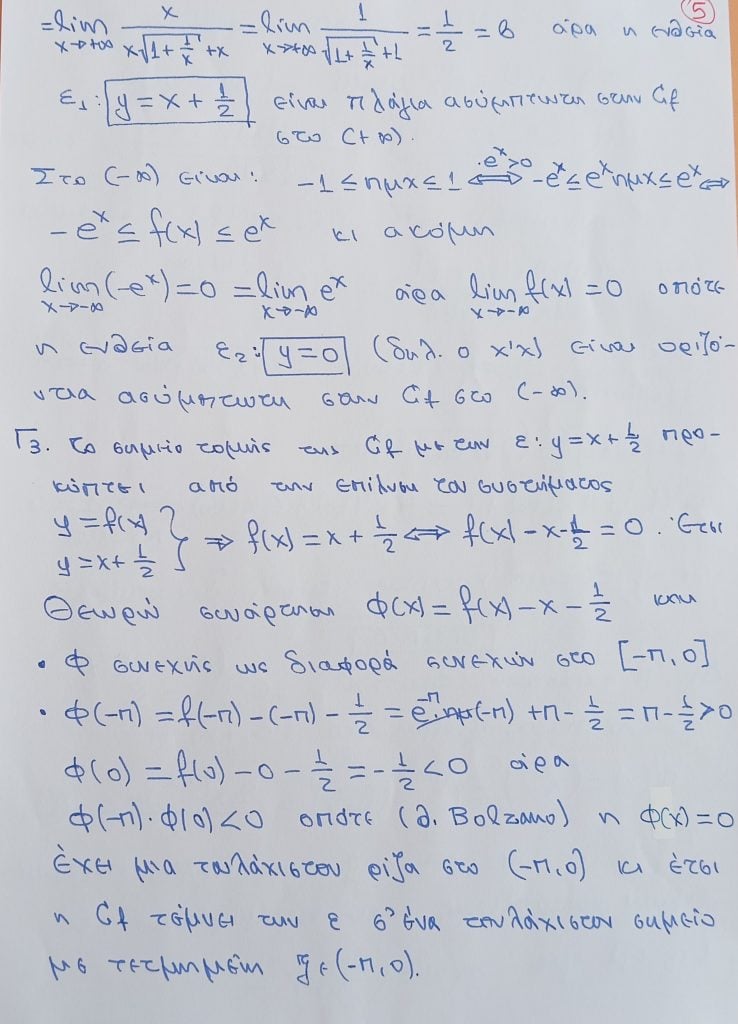 5
= lim x→+∞ x / (x√(1+1/x) + x) = lim x→+∞ 1 / (√(1+1/x) + 1) = 1/2 = β άρα η ευθεία
ε₁: y = x + 1/2 είναι πλάγια ασύμπτωτη στην Cf
στο (+∞).
Στο (-∞) είναι: -1 ≤ ημx ≤ 1 ⇔ (·eˣ>0) -eˣ ≤ eˣημx ≤ eˣ ⇔
-eˣ ≤ f(x) ≤ eˣ κι ακόμη
lim x→-∞ (-eˣ) = 0 = lim x→-∞ eˣ άρα lim x→-∞ f(x) = 0 οπότε
η ευθεία ε₂: y = 0 (δηλ. ο x'x) είναι οριζό-
ντια ασύμπτωτη στην Cf στο (-∞).
Γ3. Το σημείο τομής της Cf με την ε: y = x + 1/2 προ-
κύπτει από την επίλυση του συστήματος
y = f(x)
y = x + 1/2 } ⇒ f(x) = x + 1/2 ⇔ f(x) - x - 1/2 = 0. Έτσι
Θεωρώ συνάρτηση Φ(x) = f(x) - x - 1/2 και
• Φ συνεχής ως διαφορά συνεχών στο [-π, 0]
• Φ(-π) = f(-π) - (-π) - 1/2 = e^-π·ημ(-π) + π - 1/2 = π - 1/2 > 0
Φ(0) = f(0) - 0 - 1/2 = -1/2 < 0 άρα
Φ(-π)·Φ(0) < 0 οπότε (θ. Bolzano) η Φ(x) = 0
έχει μια τουλάχιστον ρίζα στο (-π, 0) κι έτσι
η Cf τέμνει την ε σ' ένα τουλάχιστον σημείο
με τετμημένη ξ ∈ (-π, 0).